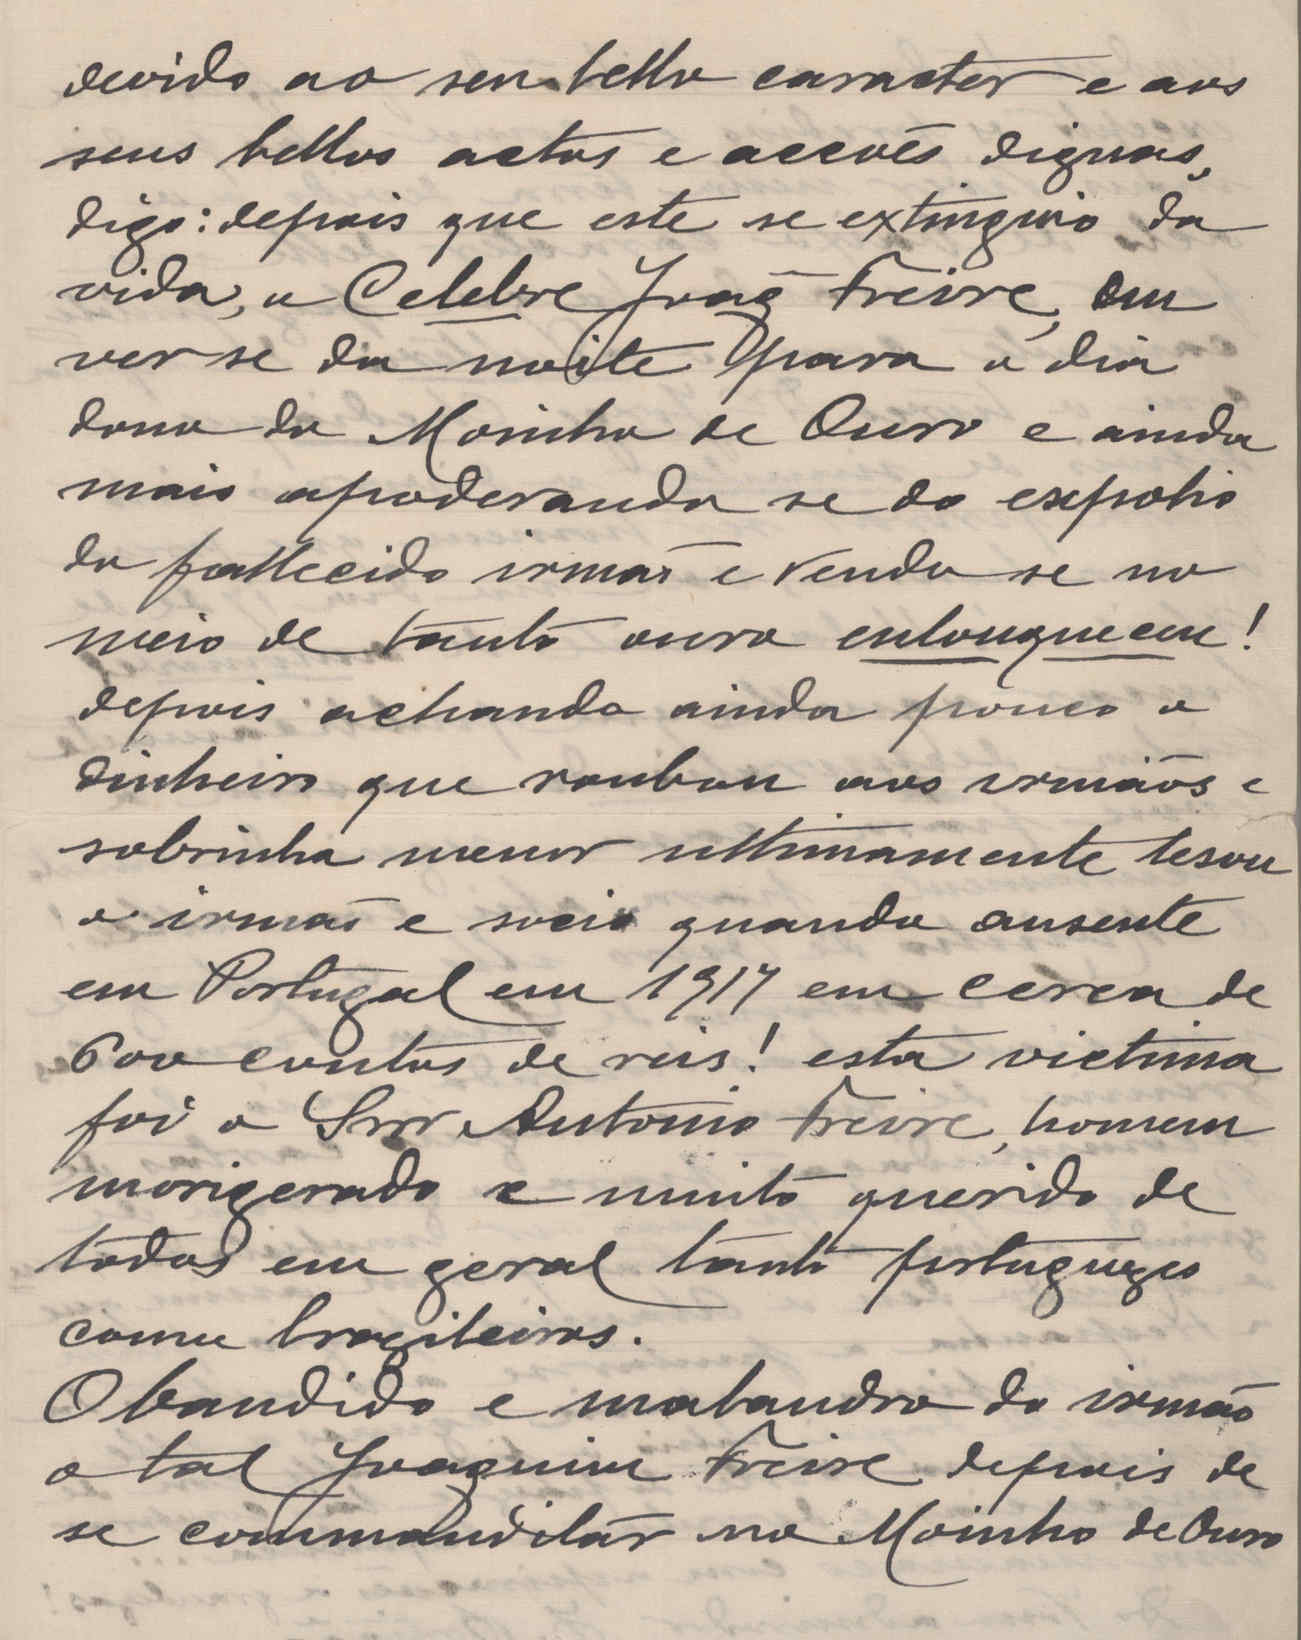 devido ao seu bello caracter e aos
seus bellos actos e accoēs dignas,
digo: depois que este se extinguio da
vida, o Celebre Joaq Freire, em
ver se da noite para o dia
dono do Moinho de Ouro e ainda
mais apoderando se do expolio
do fallecido irmaõ e vendo se no
meio de tanto ouro enlouqueceu!
depois achando ainda pouco o
dinheiro que roubou aos irmãos e
sobrinha menor ultimamente lesou
o irmaõ e socio quando ausente
em Portugal em 1917 em cerca de
600 contos de reis! esta victima
foi o Snr Antonio Freire, homem
morigerado e muito querido de
todos em geral tanto portuguezes
como brazileiros.
O bandido e malandro do irmão
o tal Joaquim Freire depois de
se commanditar no Moinho de Ouro